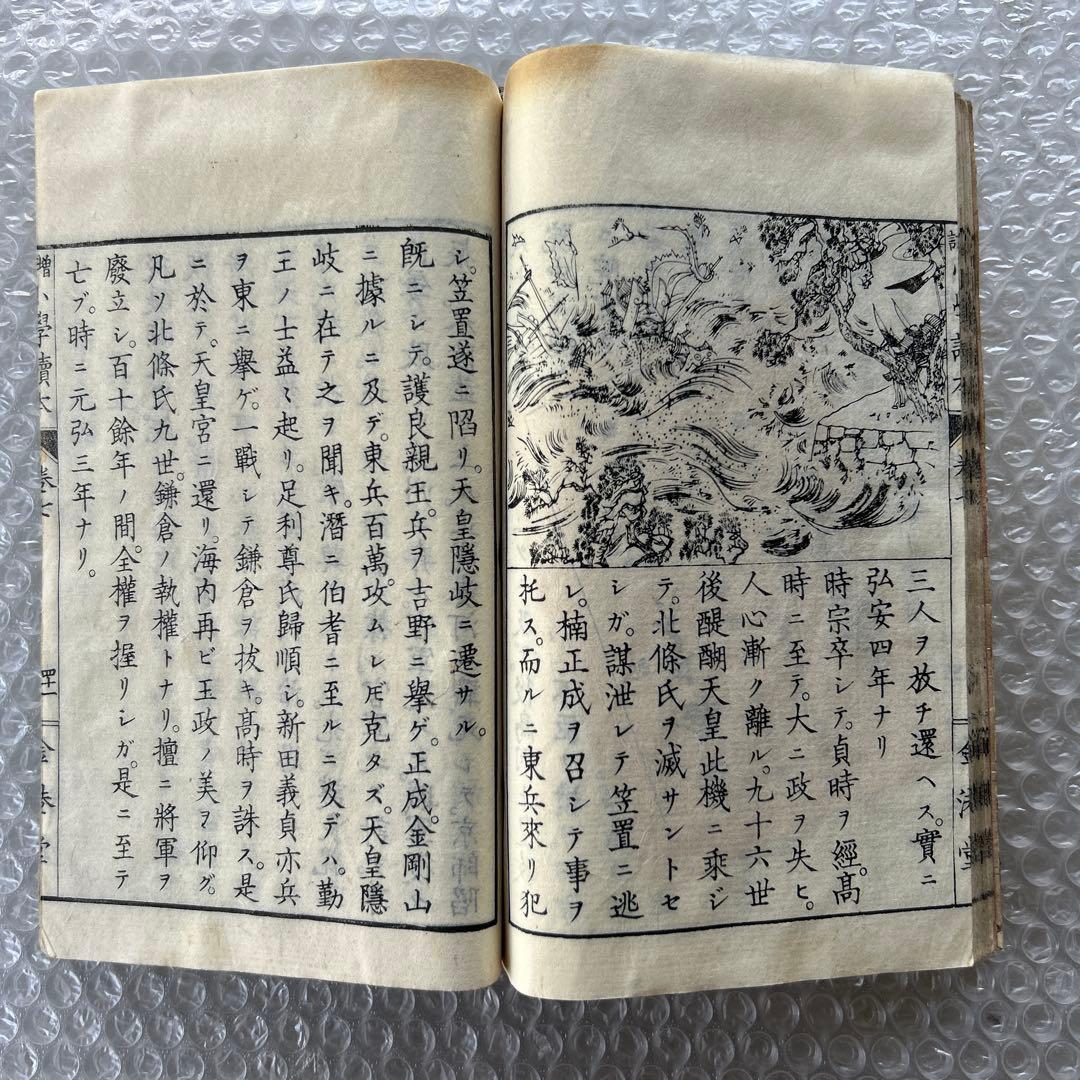 三人ヲ放チ還ヘス。實ニ
弘安四年ナリ
時宗卒シテ。貞時ヲ經。髙
時ニ至テ。大ニ政ヲ失ヒ。
人心漸ク離ル。九十六世
後醍醐天皇此機ニ乘ジ
テ。北條氏ヲ滅サントセ
シガ。謀泄レテ笠置ニ逃
レ。楠正成ヲ召シテ事ヲ
托ス。而ルニ東兵來リ犯
シ。笠置遂ニ陷リ。天皇隱岐ニ遷サル。
既ニシテ。護良親王。兵ヲ吉野ニ擧ゲ。正成。金剛山
ニ據ルニ及デ。東兵百萬。攻ムレ𪜈克タズ。天皇隱
岐ニ在テ之ヲ聞キ。潛ニ伯耆ニ至ルニ及デハ。勤
王ノ士益〻起リ。足利尊氏歸順シ。新田義貞亦兵
ヲ東ニ擧ゲ。一戰シテ鎌倉ヲ拔キ。髙時ヲ誅ス。是
ニ於テ。天皇宮ニ還リ。海内再ビ王政ノ美ヲ仰グ。
凡ソ北條氏九世。鎌倉ノ執權トナリ。擅ニ將軍ヲ
廢立シ。百十餘年ノ間。全權ヲ握リシガ。是ニ至テ
亡ブ。時ニ元弘三年ナリ。
小學讀本 卷七